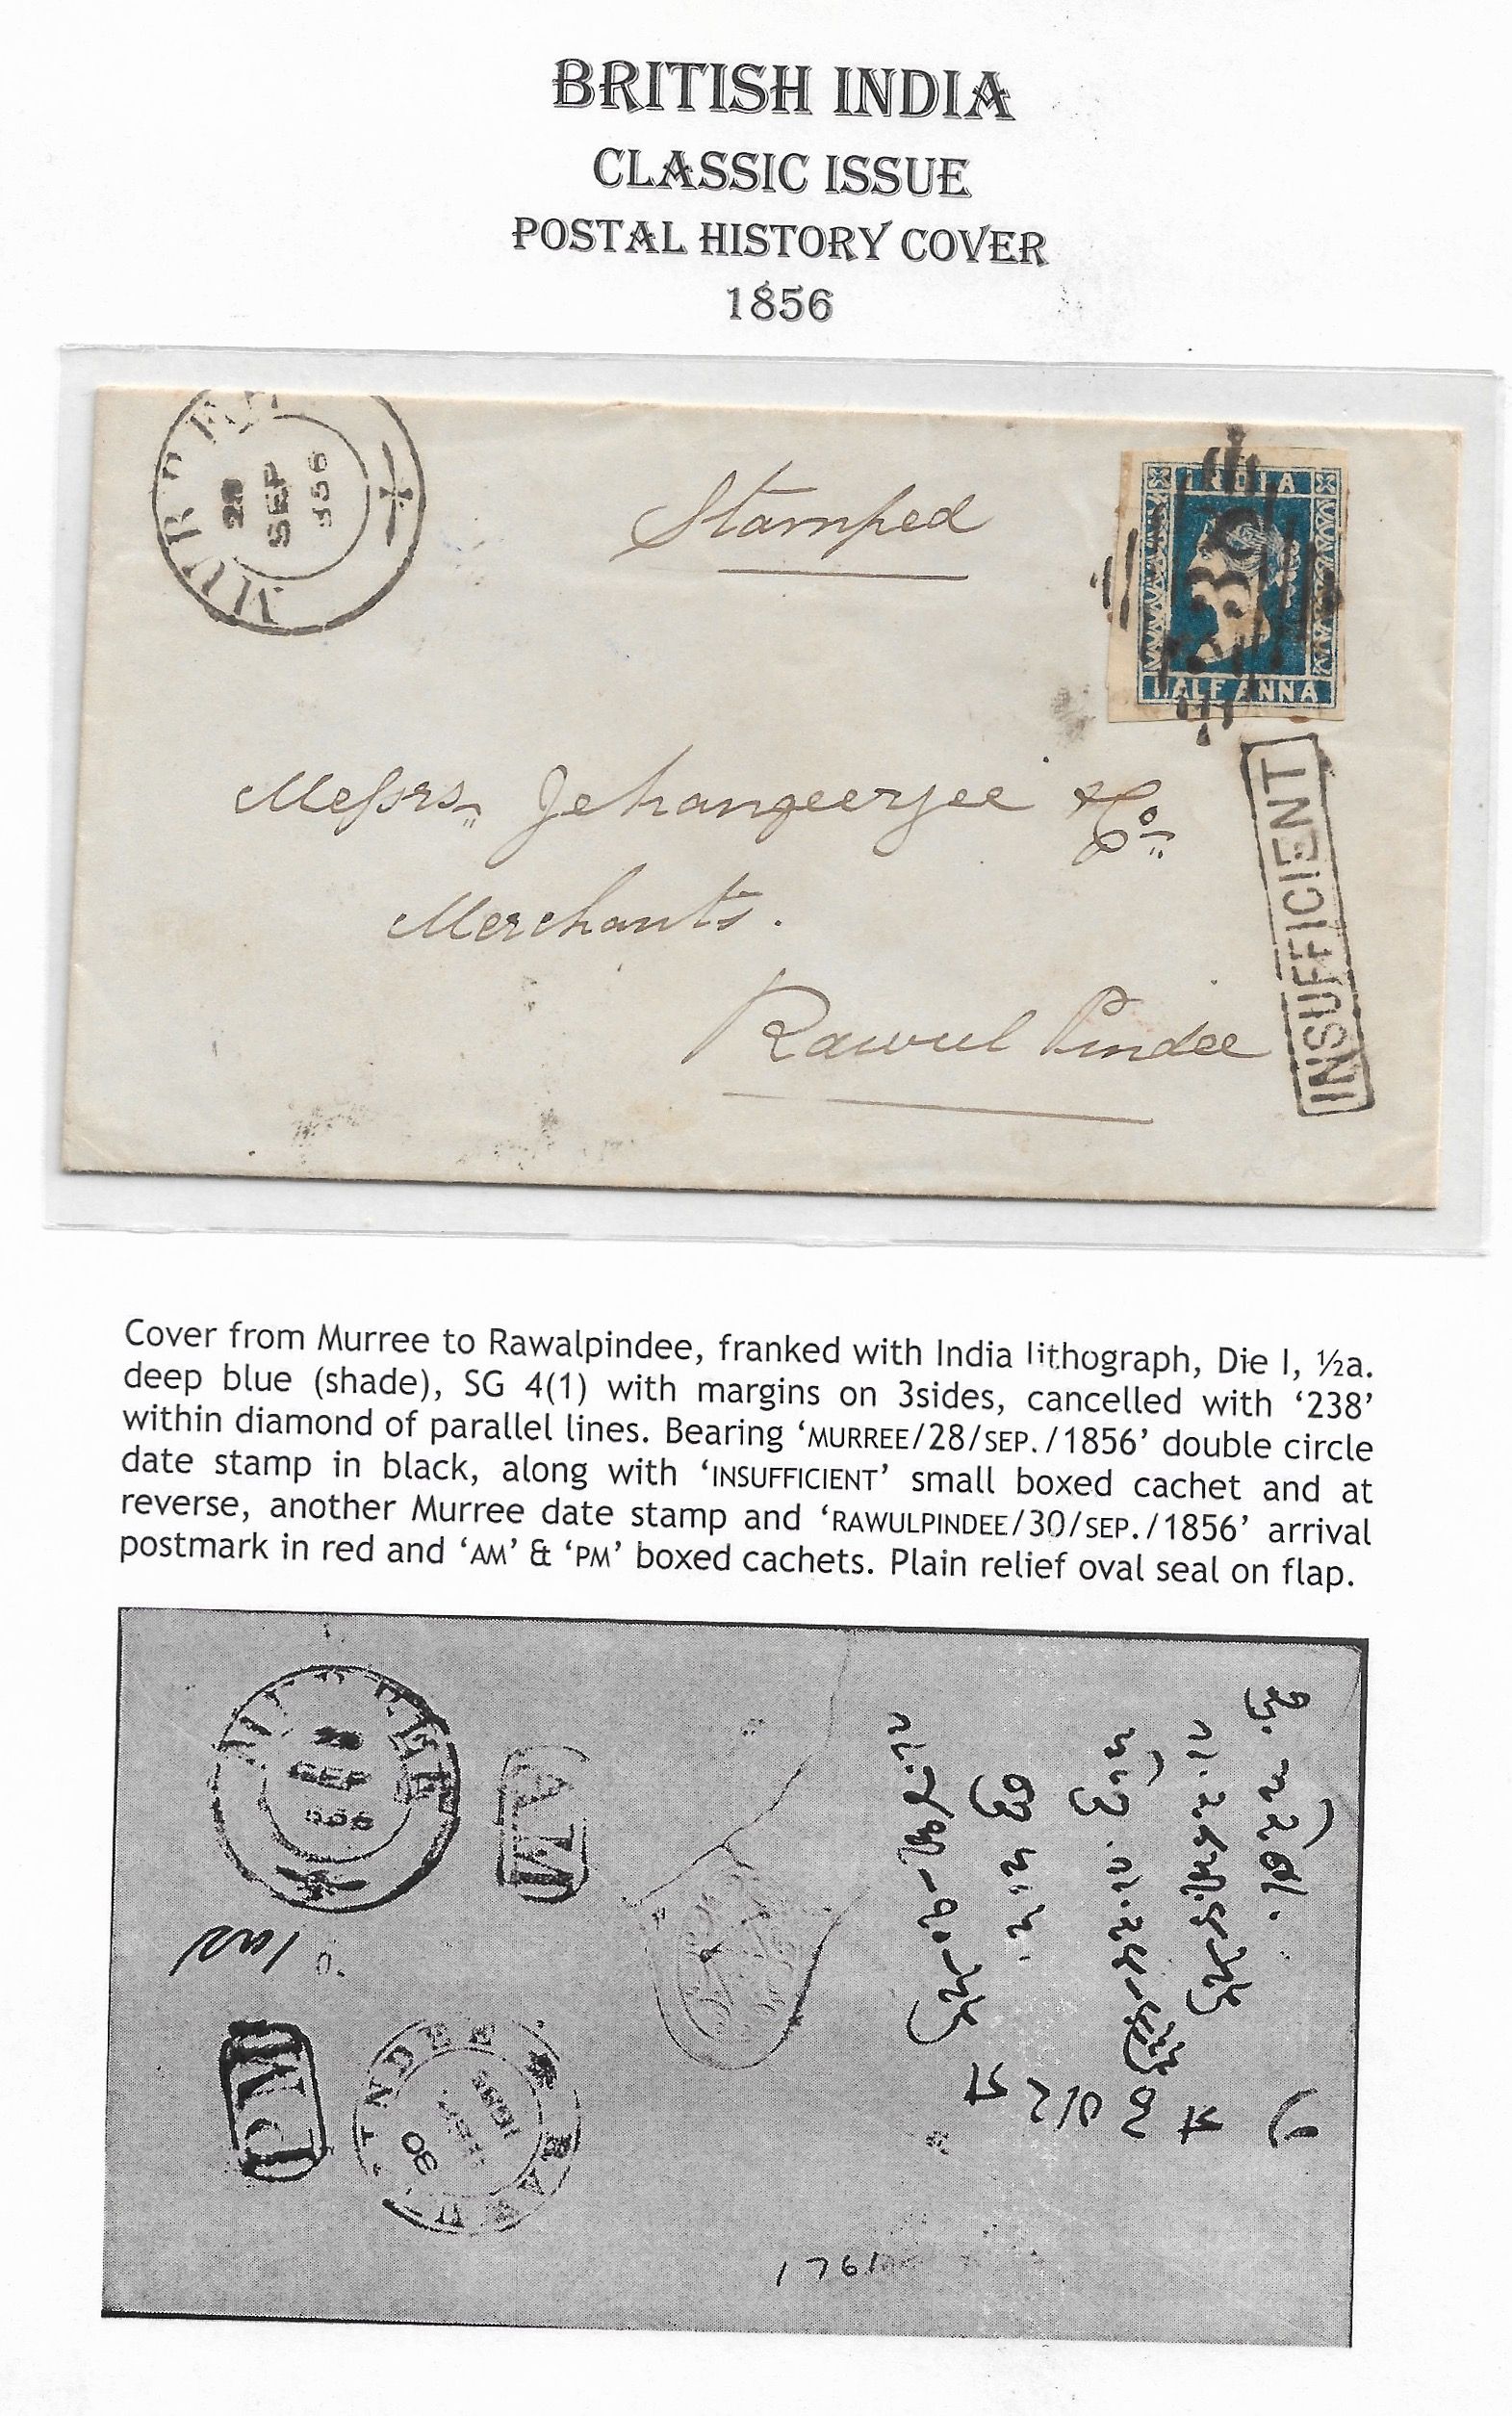 BRITISH INDIA
CLASSIC ISSUE
POSTAL HISTORY COVER
1856
MURREE
28
SEP
856
Stamped
INDIA
238
HALF ANNA
Messrs Jehangeerjee & Co.
Merchants.
Rawul Pindee
INSUFFICIENT
Cover from Murree to Rawalpindee, franked with India lithograph, Die I, ½a.
deep blue (shade), SG 4(1) with margins on 3sides, cancelled with ‘238’
within diamond of parallel lines. Bearing ‘MURREE/28/SEP./1856’ double circle
date stamp in black, along with ‘INSUFFICIENT’ small boxed cachet and at
reverse, another Murree date stamp and ‘RAWULPINDEE/30/SEP./1856’ arrival
postmark in red and ‘AM’ & ‘PM’ boxed cachets. Plain relief oval seal on flap.
MURREE
SEP
856
AM
PM
30
1761